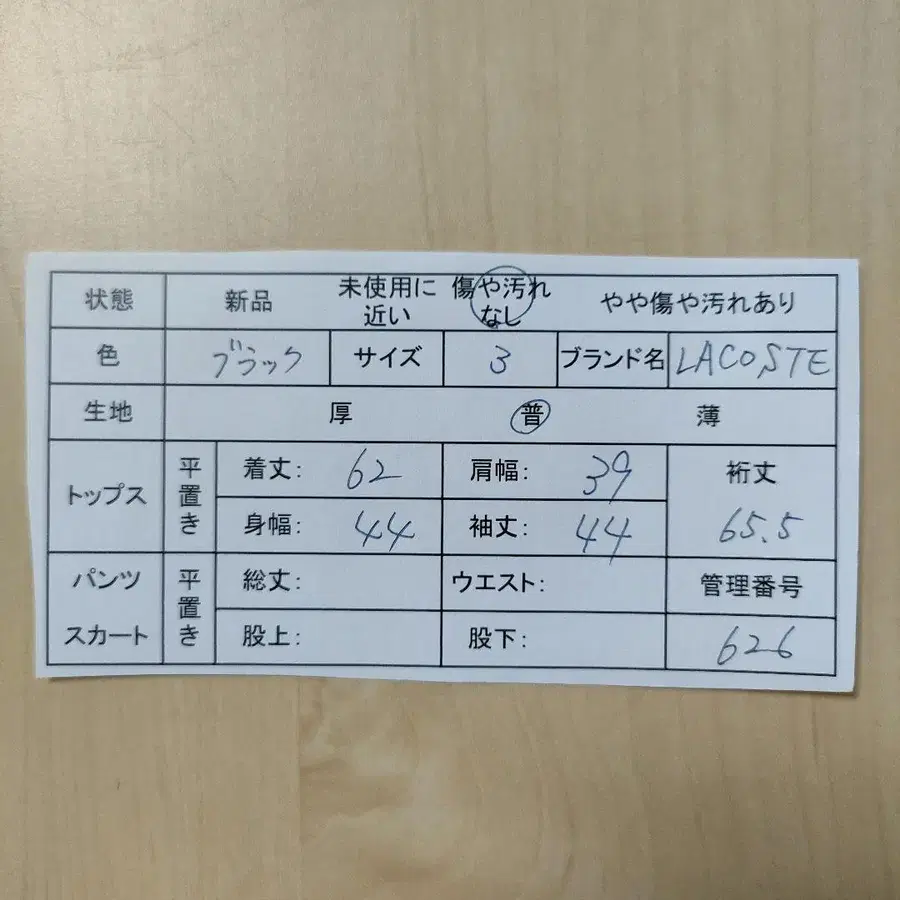 状態 新品 未使用に近い 傷や汚れなし やや傷や汚れあり
色 ブラック サイズ 3 ブランド名 LACOSTE
生地 厚 普 薄
トップス 平置き 着丈: 62 肩幅: 39 裄丈
身幅: 44 袖丈: 44 65.5
パンツ 平置き 総丈: ウエスト: 管理番号
スカート 股上: 股下: 626